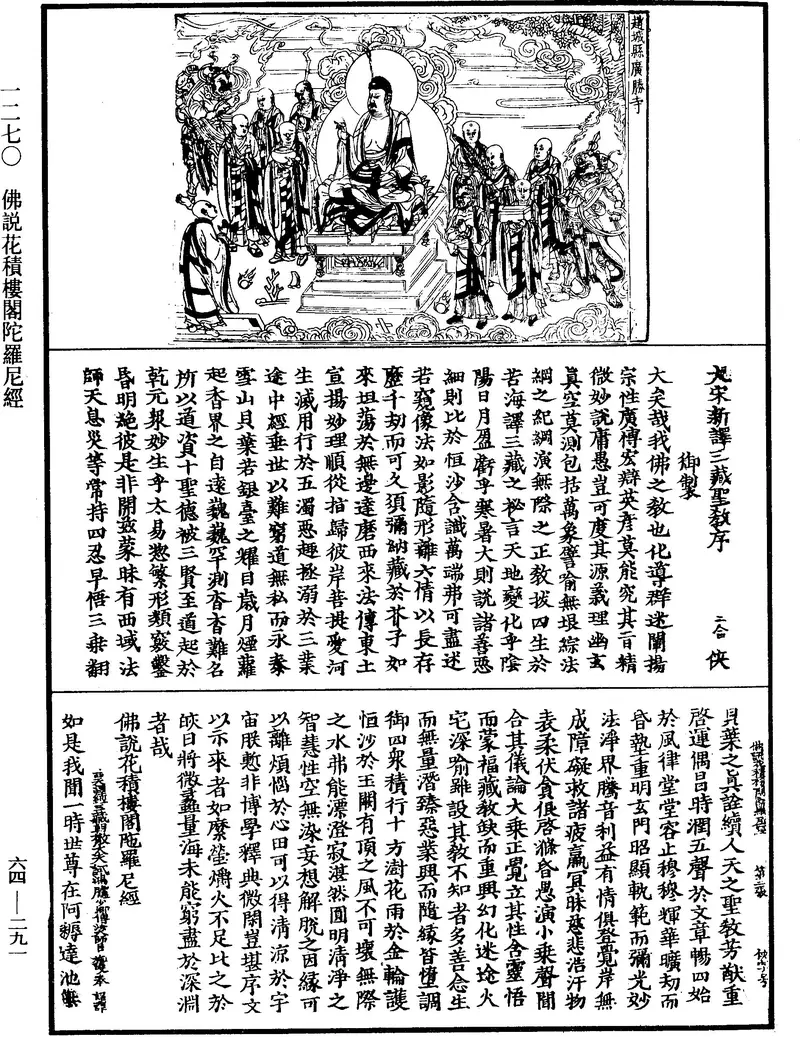 趙城縣廣勝寺
大宋新譯三藏聖教序 二合 俠
御製
大矣哉我佛之教也化導群迷闡揚
宗性廣博宏辯英彥莫能究其旨精
微妙說庸愚豈可度其源義理幽玄
真空莫測包括萬象譬喻無垠綜法
網之紀綱演無際之正教拔四生於
苦海譯三藏之祕言天地變化乎陰
陽日月盈虧乎寒暑大則說諸善惡
細則比於恒沙含識萬端弗可盡述
若窺像法如影隨形離六情以長存
歷千劫而可久須彌納藏於芥子如
來坦蕩於無邊達磨西來法傳東土
宣揚妙理順從指歸彼岸菩提愛河
生滅用行於五濁惡趣拯溺於三業
途中經垂世以難窮道無私而永泰
雪山貝葉若銀臺之耀日歲月煙蘿
起香界之自遠巍巍罕測杳杳難名
所以道資十聖德被三賢至道起於
乾元眾妙生乎太易惣繁形類竅鑿
昏明絕彼是非開茲蒙昧有西域法
師天息災等常持四忍早悟三乘翻
貝葉之真詮續人天之聖教芳猷重
啓運偶昌時潤五聲於文章暢四始
於風律堂堂容止穆穆輝華曠劫而
昏墊重明玄門昭顯軌範而彌光妙
法淨界騰音利益有情俱登覺岸無
成障礙救諸疲羸冥昧慈悲浩汗物
表柔伏貪很啓滌昏愚演小乘聲聞
合其儀論大乘正覺立其性含靈悟
而蒙福藏教缺而重興幻化迷途火
宅深喻雖設其教不知者多善念生
而無量潛臻惡業興而隨緣皆墮調
御四眾積行十方澍花雨於金輪護
恒沙於玉闕有頂之風不可壞無際
之水弗能漂澄寂湛然圓明清淨之
智慧性空無染妄想解脫之因緣可
以離煩惱於心田可以得清涼於宇
宙朕慙非博學釋典微閑豈堪序文
以示來者如縻螢爝火不足比之於
皎日將微蠡量海未能窮盡於深淵
者哉
佛說花積樓閣陀羅尼經
如是我聞一時世尊在阿耨達池無
一二七〇 佛説花積樓閣陀羅尼經
六四—二九一